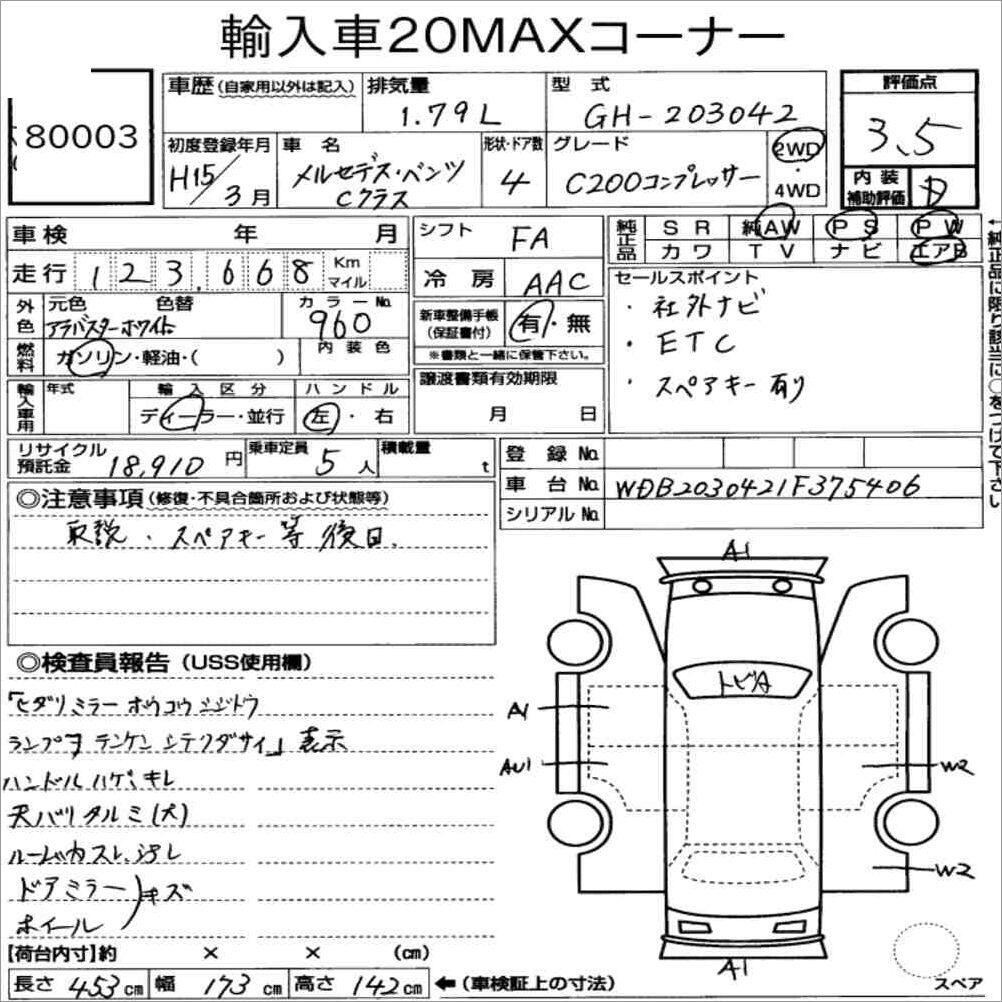 輸入車20MAXコーナー
80003
車歴(自家用以外は記入) 排気量 1.79L 型式 GH-203042 評価点 3.5
初度登録年月 H15/3月 車名 メルセデス・ベンツ Cクラス 形状・ドア数 4 グレード C200コンプレッサー 2WD・4WD
内装補助評価 D
車検 年 月 シフト FA 純正品 SR 純AW PS PW
カワ TV ナビ エアB
走行 123,668 Km マイル 冷房 AAC セールスポイント
外色 元色 アラバスターホワイト 色替 カラーNo. 960 新車整備手帳(保証書付) 有・無
・社外ナビ
・ETC
・スペアキー有り
燃料 ガソリン・軽油・( ) 内装色 ※書類と一緒に保管下さい。
輸入車用 年式 輸入区分 ディーラー・並行 ハンドル 左・右 譲渡書類有効期限 月 日
←純正品に限り該当に○をつけて下さい
リサイクル預託金 18,910円 乗車定員 5人 積載量 t
登録No.
車台No. WDB2030421F375406
シリアルNo.
◎注意事項(修復・不具合箇所および状態等)
取説・スペアキー等後日.
◎検査員報告(USS使用欄)
「ヒダリミラーホウコウシジトウ
ランプヲテンケンシテクダサイ」表示
ハンドルハゲ、キレ
天バリタルミ(大)
ルームカスレ、汚レ
ドアミラー
ホイール
)キズ
A1
トビA
A1
AU1
W2
W2
A1
【荷台内寸】約 × × (cm)
長さ 453cm 幅 173cm 高さ 142cm ←(車検証上の寸法)
スペア